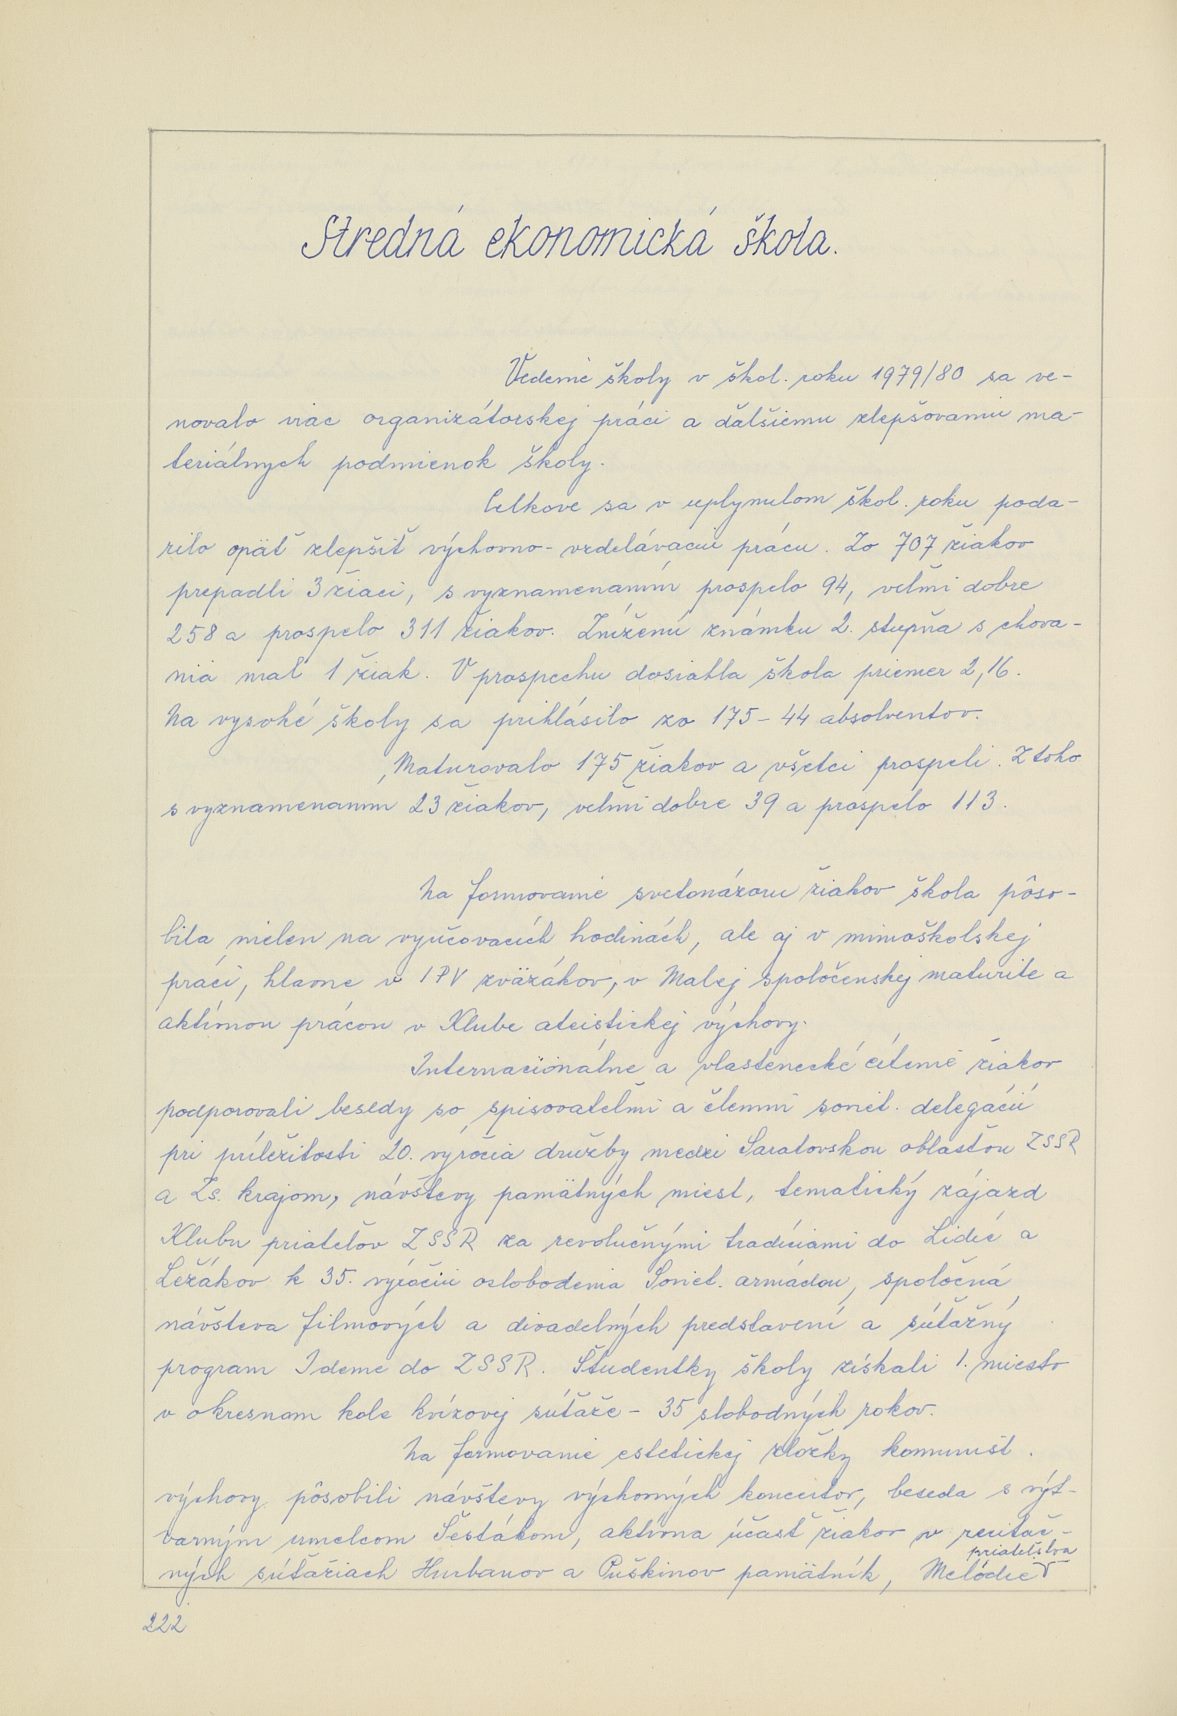 Stredná ekonomická škola.
Vedenie školy v škol. roku 1979/80 sa ve-
novalo viac organizátorskej práci a ďalšiemu zlepšovaniu ma-
teriálnych podmienok školy.
Celkove sa v uplynulom škol. roku poda-
rilo opäť zlepšiť výchovno-vzdelávaciu prácu. Zo 707 žiakov
prepadli 3 žiaci, s vyznamenaním prospelo 94, veľmi dobre
258 a prospelo 311 žiakov. Zníženú známku 2. stupňa s chova-
nia mal 1 žiak. V prospechu dosiahla škola priemer 2,16.
Na vysoké školy sa prihlásilo zo 175 - 44 absolventov.
Maturovalo 175 žiakov a všetci prospeli. Z toho
s vyznamenaním 23 žiakov, veľmi dobre 39 a prospelo 113.
Na formovanie svetonázoru žiakov škola pôso-
bila nielen na vyučovacích hodinách, ale aj v mimoškolskej
práci, hlavne v IPV zväzákov, v Malej spoločenskej maturite a
aktívnou prácou v Klube ateistickej výchovy.
Internacionálne a vlastenecké cítenie žiakov
podporovali besedy so spisovateľmi a členmi soviet. delegácií
pri príležitosti 20. výročia družby medzi Saratovskou oblasťou ZSSR
a Zs. krajom, návštevy pamätných miest, tematický zájazd
Klubu priateľov ZSSR za revolučnými tradíciami do Lidíc a
Ležákov k 35. výročiu oslobodenia Soviet. armádou, spoločná
návšteva filmových a divadelných predstavení a súťažný
program Ideme do ZSSR. Študentky školy získali 1. miesto
v okresnom kole kvízovej súťaže - 35 slobodných rokov.
Na formovanie estetickej zložky komunist.
výchovy pôsobili návštevy výchovných koncertov, beseda s výt-
varným umelcom Šestákom, aktívna účasť žiakov v recitač-
ných súťažiach Hurbanov a Puškinov pamätník, Melódie priateľstva
222